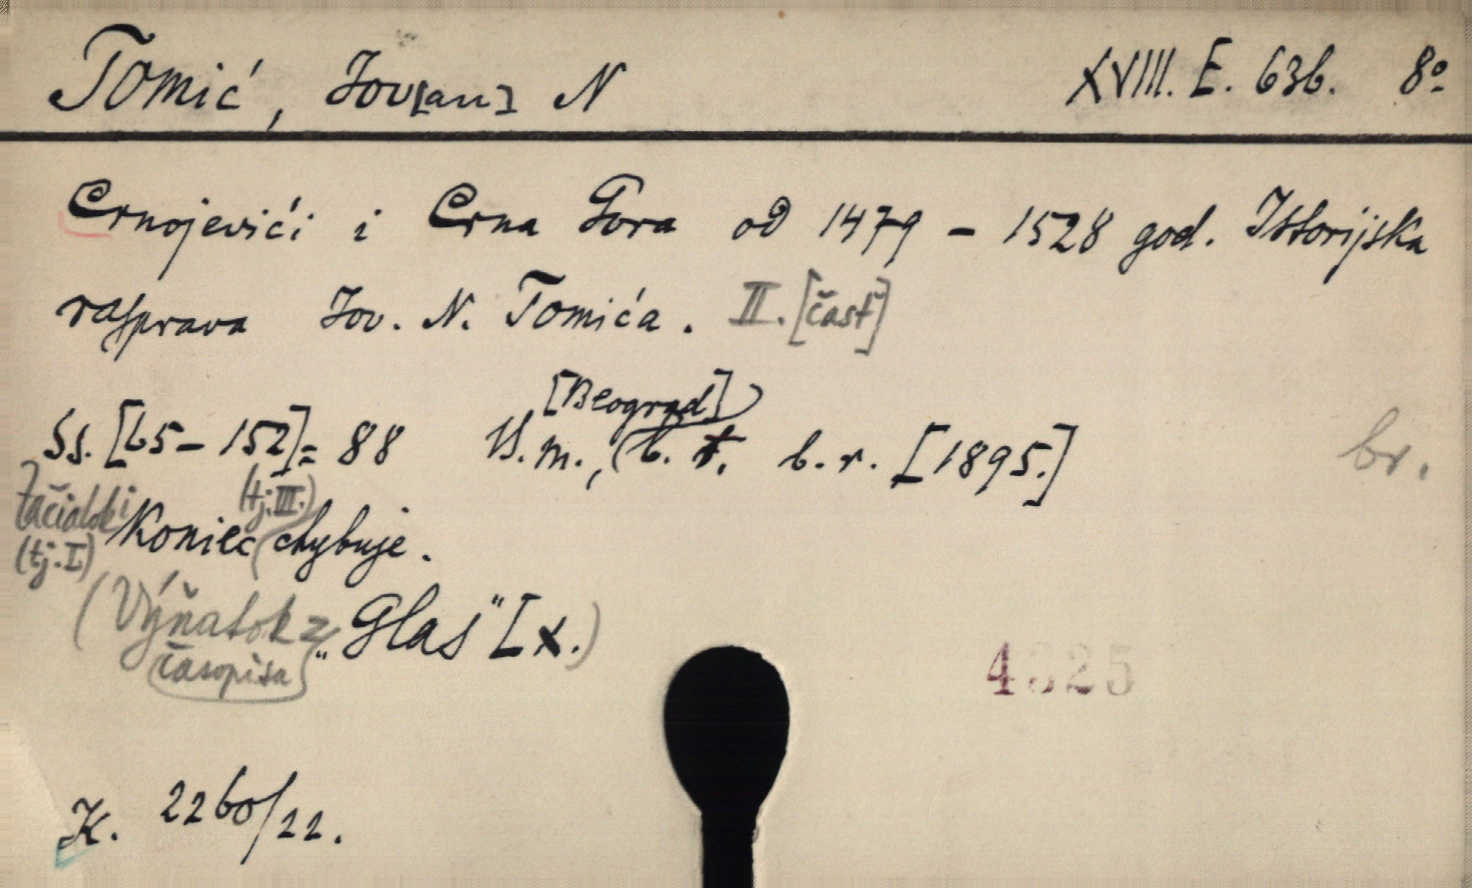 Tomić, Jov[an] N XVIII. E. 636. 8º
Crnojevići i Crna Gora od 1479 - 1528 god. Istorijska
rasprava Jov. N. Tomića. II. [časť]
[Beograd]
Ss. [65 - 152] = 88 B. m., b. t. b. r. [1895.] br.
Začiatok i (tj. III.)
(tj. I.) Koniec chybuje.
(Výňatok z „Glas" [X.)
časopisa
4325
K. 2260/22.